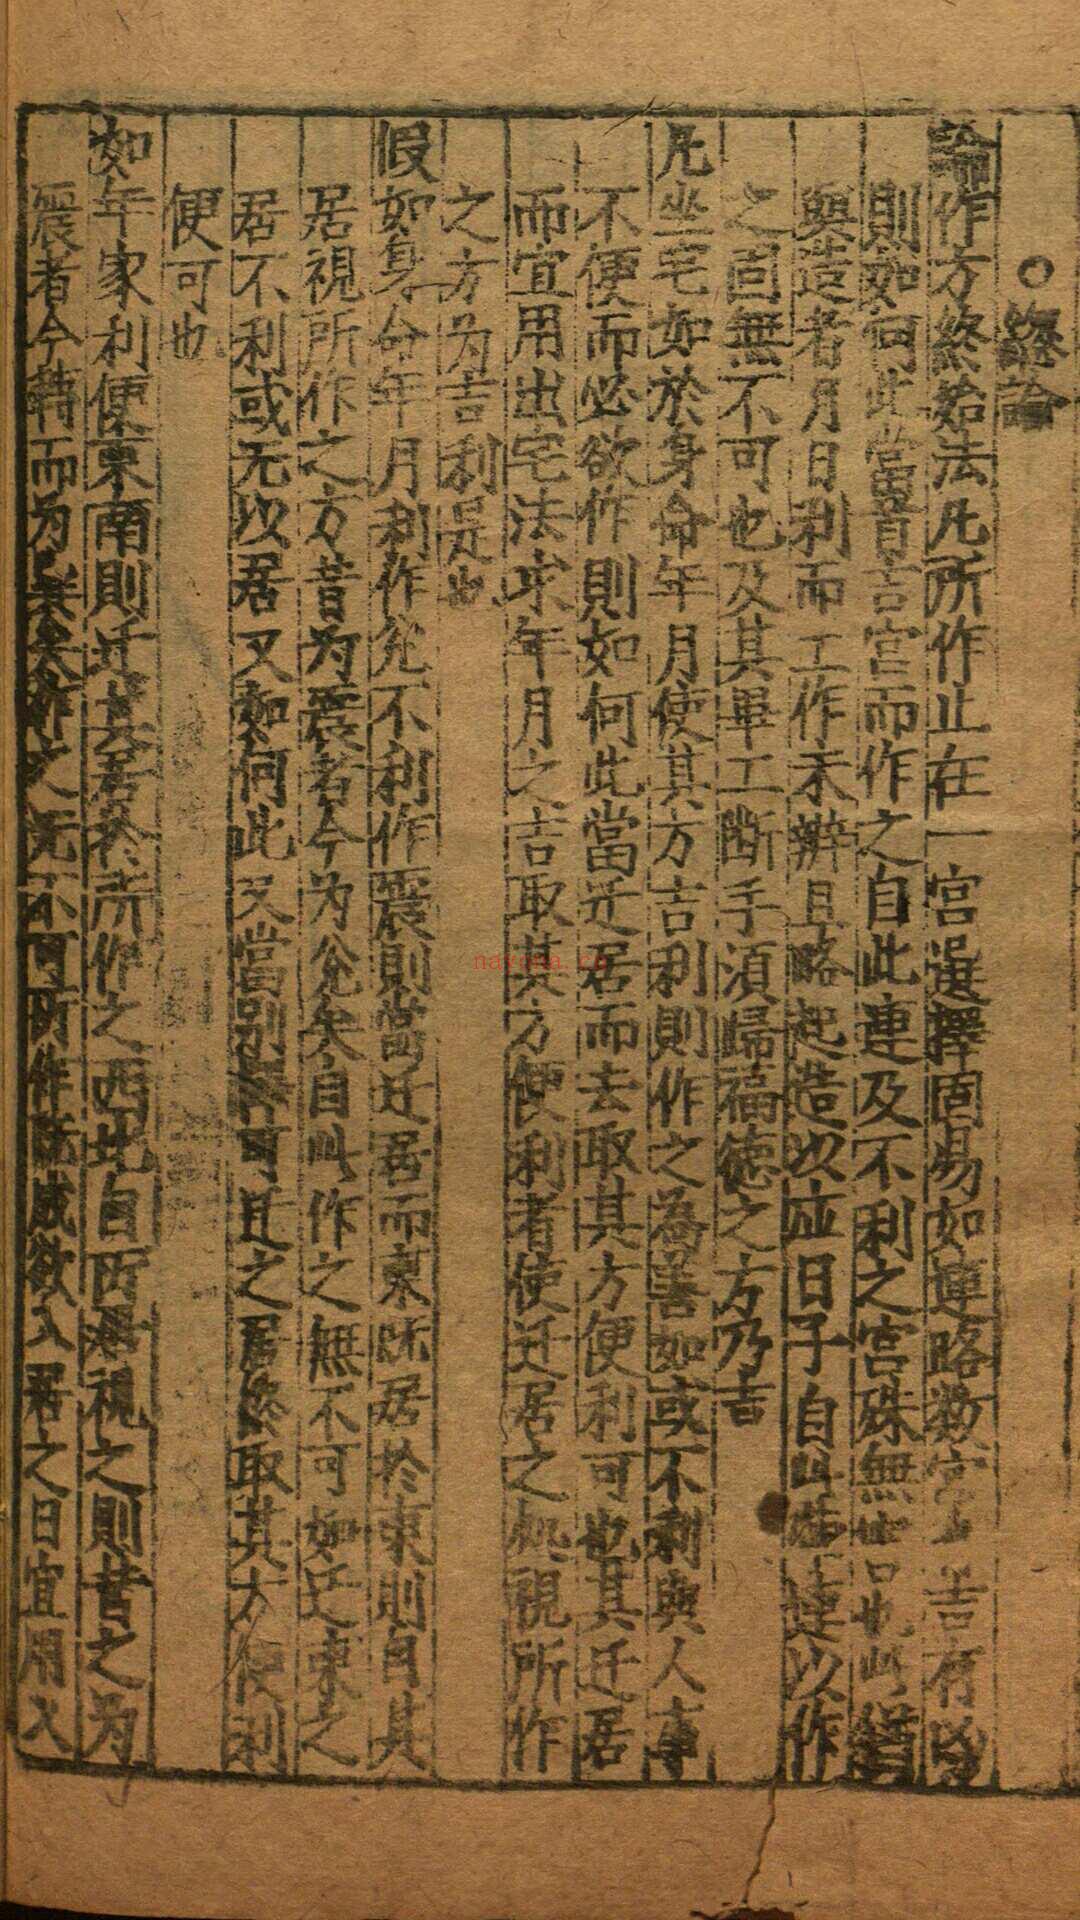 ○總論
論作方終始法凡所作止在一宮選擇固易如連略数宮吉有凶
則如何此當首吉宮而作之自此連及不利之宮殊無害也此猶
與造者月日利而工作未辦且略起造以应日子自此連以作
之固無不可也及其畢工断手須歸福德之方乃吉
凡坐宅如於身命年月使其方吉利則作之為善如或不利與人事
不便而必欲作則如何此當迁居而去取其方便利可也其迁居
而宜用出宅法求年月之吉取其方便利者使迁居之処視所作
之方为吉利是也
假如身命年月利作兊不利作震則當迁居而東既居於東則自其
居視所作之方昔为震者今为兊矣自此作之無不可如迁東之
居不利或无以居又如何此又當別 可迁之居終取其方便利
便可也
如年家利便東南則迁其居於所作之西北自西北視之則昔之为
震者今轉而为巽矣作之无不可所作既成欲入居之日宜用入
nayona.cn